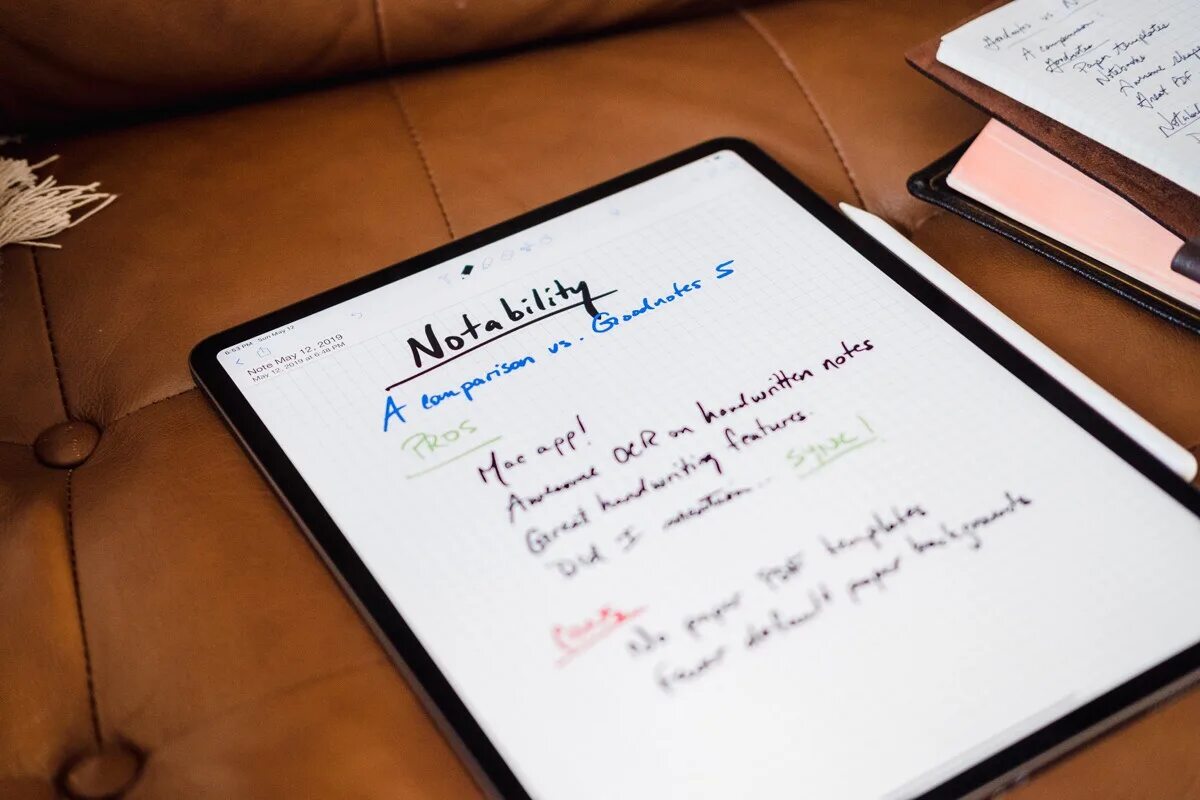 6:53 PM Sun May 12
Note May 12, 2019
May 12, 2019 at 6:48 PM
Notability
A comparison vs. Goodnotes 5
PROS
Mac app!
Awesome OCR on handwritten notes
Great handwriting features.
Did I mention... SYNC!
CONS
No paper PDF templates
Fewer default paper backgrounds
Goodnotes vs
A comparison
Goodnotes
Paper templates
Notebooks
Awesome
Great PDF